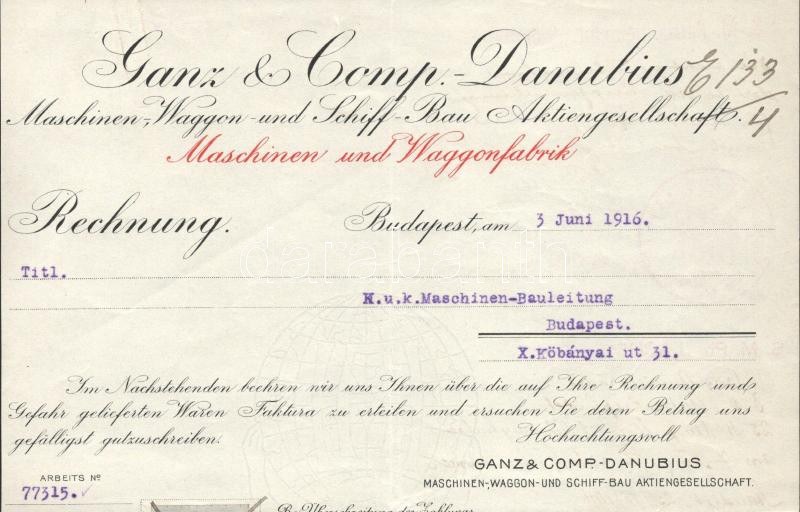 Ganz & Comp.-Danubius
E 133/4
Maschinen-, Waggon- und Schiff-Bau Aktiengesellschaft.
Maschinen und Waggonfabrik
Rechnung.
Budapest, am 3 Juni 1916.
Titl.
K.u.k.Maschinen-Bauleitung
Budapest.
X.Köbányai ut 31.
Im Nachstehenden beehren wir uns Ihnen über die auf Ihre Rechnung und
Gefahr gelieferten Waren Faktura zu erteilen und ersuchen Sie deren Betrag uns
gefälligst gutzuschreiben.
Hochachtungsvoll
GANZ & COMP.-DANUBIUS
MASCHINEN-, WAGGON- UND SCHIFF-BAU AKTIENGESELLSCHAFT.
ARBEITS No
77315.
Bei Überschreitung der Zahlungs
darabanth